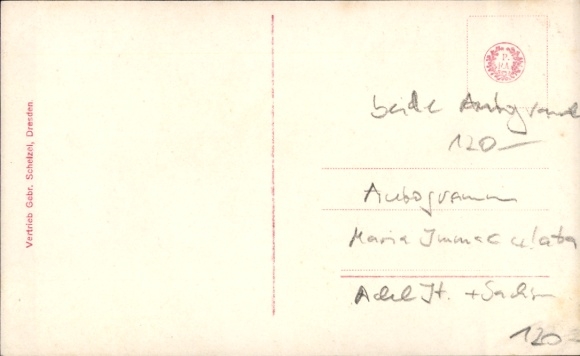 Vertrieb Gebr. Scheizel, Dresden.
beide Autogramme
120-
Autogramm
Maria Immaculata
Adel It. + Sachsen
120-